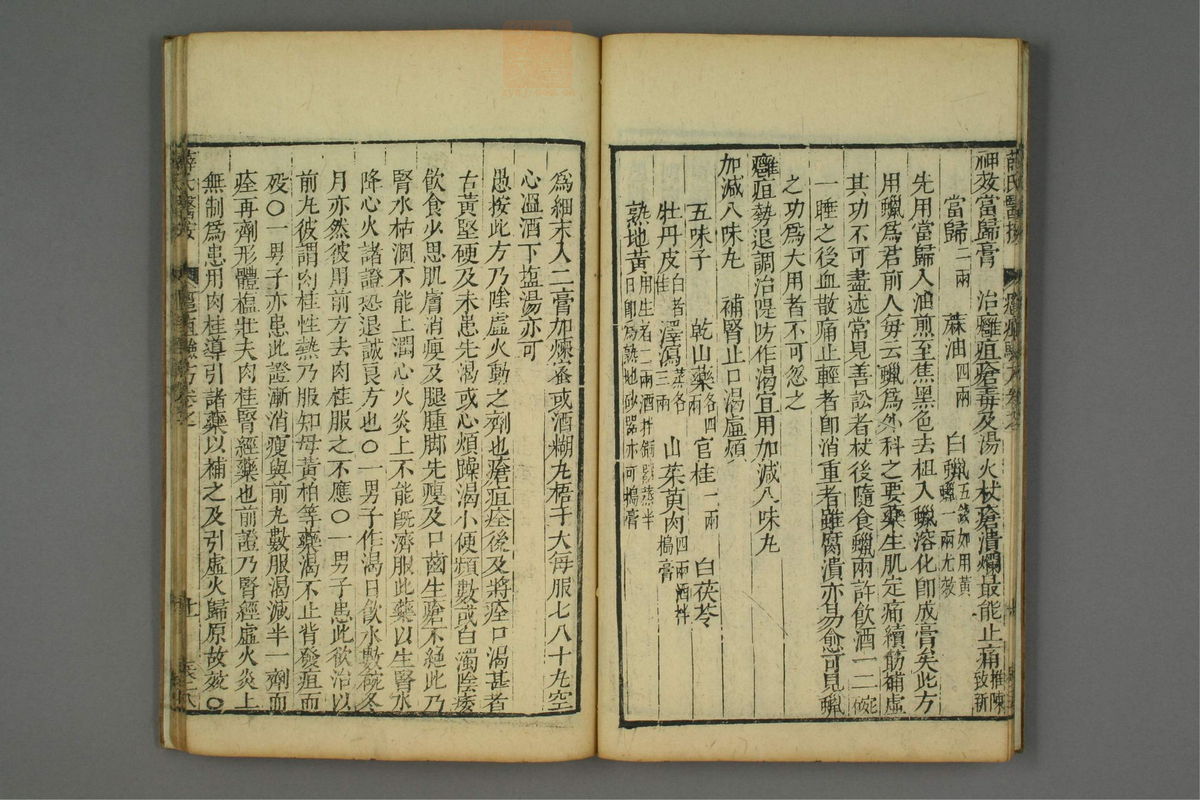 神效當歸膏　治癰疽瘡毒及湯火杖瘡潰爛最能止痛推陳致新
當歸一兩　蔴油四兩　白蠟五錢如用黃蠟一兩尤效
先用當歸入油煎至焦黑色去柤入蠟溶化卽成膏矣此方
用蠟爲君前人毎云蠟爲外科之要藥生肌定痛續筋補虛
其功不可盡述常見善訟者杖後隨食蠟兩許飲酒一二碗
一睡之後血散痛止輕者卽消重者雖腐潰亦易愈可見蠟
之功爲大用者不可忽之
癰疽勢退調治隄防作渴宜用加減八味丸
加減八味丸　補腎止口渴虛煩
五味子　乾山藥各四兩　官桂一兩　白茯苓
牡丹皮白者佳　澤瀉蒸各三兩　山茱萸肉四兩酒拌搗膏
熟地黃用生者二兩酒拌銅器蒸半日卽爲熟地砂器亦可搗膏
爲細末入二膏加煉蜜或酒糊丸梧子大毎服七八十丸空
心溫酒下塩湯亦可
愚按此方乃陰虛火動之劑也瘡疽痊後及將痊口渴甚者
舌黃堅硬及未患先渴或心煩躁渴小便頻數或白濁陰痿
飲食少思肌膚消瘦及腿腫脚先瘦及口齒生瘡不絕此乃
腎水枯涸不能上潤心火炎上不能旣濟服此藥以生腎水
降心火諸證恐退誠良方也〇一男子作渴日飲水數碗冬
月亦然彼用前方去肉桂服之不應〇一男子患此欲治以
前丸彼謂肉桂性熱乃服知母黃柏等藥渴不止背發疽而
歿〇一男子亦患此證漸消瘦與前丸數服渴減半一劑而
痊再劑形體榅壯夫肉桂腎經藥也前證乃腎經虛火炎上
無制爲患用肉桂導引諸藥以補之及引虛火歸原故效〇
薛氏醫按